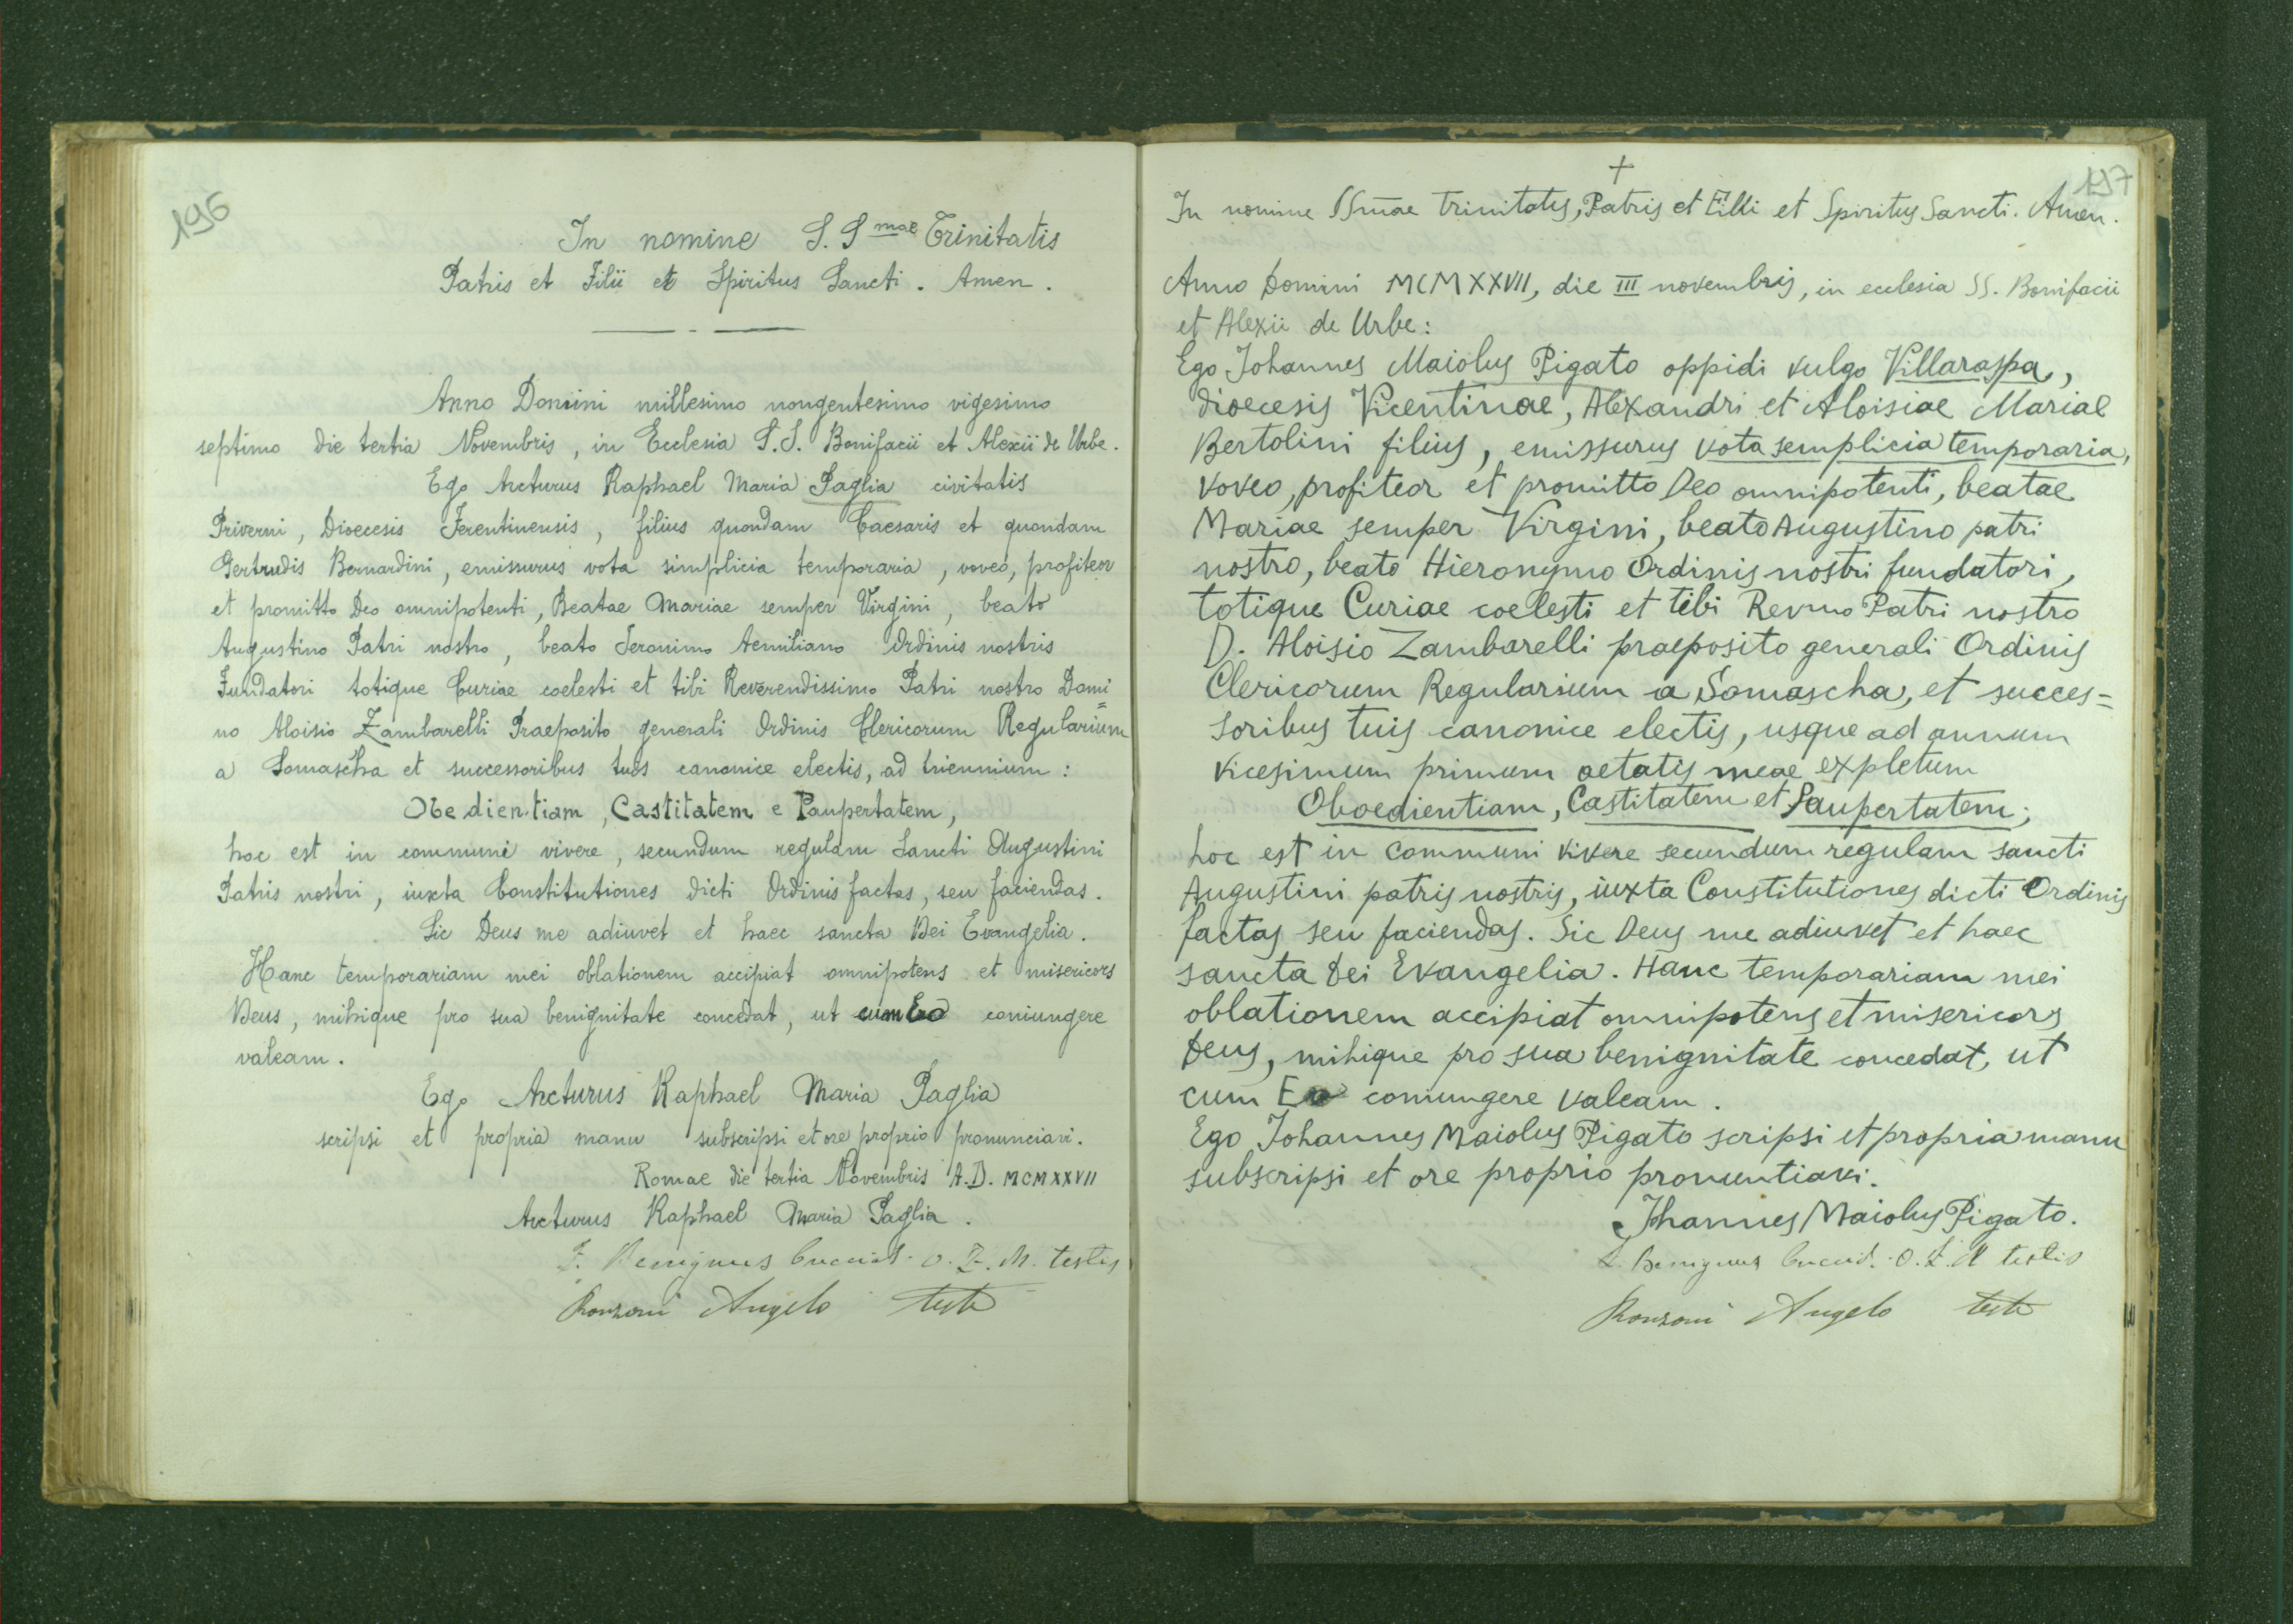 196
In nomine S. Smae Trinitatis
Patris et Filii et Spiritus Sancti. Amen.
Anno Domini millesimo nongentesimo vigesimo
septimo die tertia Novembris, in Ecclesia S.S. Bonifacii et Alexii de Urbe.
Ego Arcturus Raphael Maria Paglia civitatis
Priverni, Dioecesis Ferentinensis, filius quondam Caesaris et quondam
Gertrudis Bernardini, emissurus vota simplicia temporaria, voveo, profiteor
et promitto Deo omnipotenti, Beatae Mariae semper Virgini, beato
Augustino Patri nostro, beato Jeronimo Aemiliano Ordinis nostris
Fundatori totique Curiae coelesti et tibi Reverendissimo Patri nostro Domi=
no Aloisio Zambarelli Praeposito generali Ordinis Clericorum Regularium
a Somascha et successoribus tuis canonice electis, ad triennium:
Obedientiam, Castitatem e Paupertatem,
hoc est in communi vivere, secundum regulam Sancti Augustini
Patris nostri, iuxta Constitutiones dicti Ordinis factas, seu faciendas.
Sic Deus me adiuvet et haec sancta Dei Evangelia.
Hanc temporariam mei oblationem accipiat omnipotens et misericors
Deus, mihique pro sua benignitate concedat, ut cum Eo coniungere
valeam.
Ego Arcturus Raphael Maria Paglia
scripsi et propria manu subscripsi et ore proprio pronunciavi.
Romae die tertia Novembris A.D. MCMXXVII
Arcturus Raphael Maria Paglia.
F. Benignus O.F.M. testis
Ronzoni Angelo teste
197
+
In nomine SSmae Trinitatis, Patris et Filii et Spiritus Sancti. Amen.
Anno Domini MCMXXVII, die III novembris, in ecclesia SS. Bonifacii
et Alexii de Urbe:
Ego Johannes Maiolus Pigato oppidi vulgo Villaraspa,
dioecesis Vicentinae, Alexandri et Aloisiae Mariae
Bertolini filius, emissurus vota semplicia temporaria,
voveo, profiteor et promitto Deo omnipotenti, beatae
Mariae semper Virgini, beato Augustino patri
nostro, beato Hieronymo Ordinis nostri fundatori,
totique Curiae coelesti et tibi Revmo Patri nostro
D. Aloisio Zambarelli praeposito generali Ordinis
Clericorum Regularium a Somascha, et succes=
soribus tuis canonice electis, usque ad annum
vicesimum primum aetatis meae expletum
Oboedientiam, Castitatem et Paupertatem;
hoc est in communi vivere secundum regulam sancti
Augustini patris nostris, iuxta Constitutiones dicti Ordinis
factas seu faciendas. Sic Deus me adiuvet et haec
sancta Dei Evangelia. Hanc temporariam mei
oblationem accipiat omnipotens et misericors
Deus, mihique pro sua benignitate concedat, ut
cum Eo coniungere valeam.
Ego Johannes Maiolus Pigato scripsi et propria manu
subscripsi et ore proprio pronuntiavi.
Jhannes Maiolus Pigato.
F. Benignus O.F.M testis
Ronzoni Angelo teste